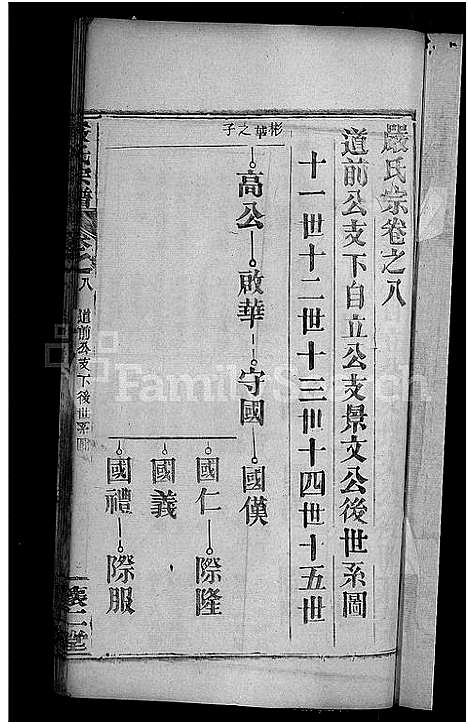 嚴氏宗卷之八
道前公支下自立公支景文公後世系圖
十一世十二世十三世十四世十五世
彬華之子
高公 啟華 守國 國僕
國仁 際隆
國義
國禮 際服
八 道前公支下後世系圖
FamilySearch